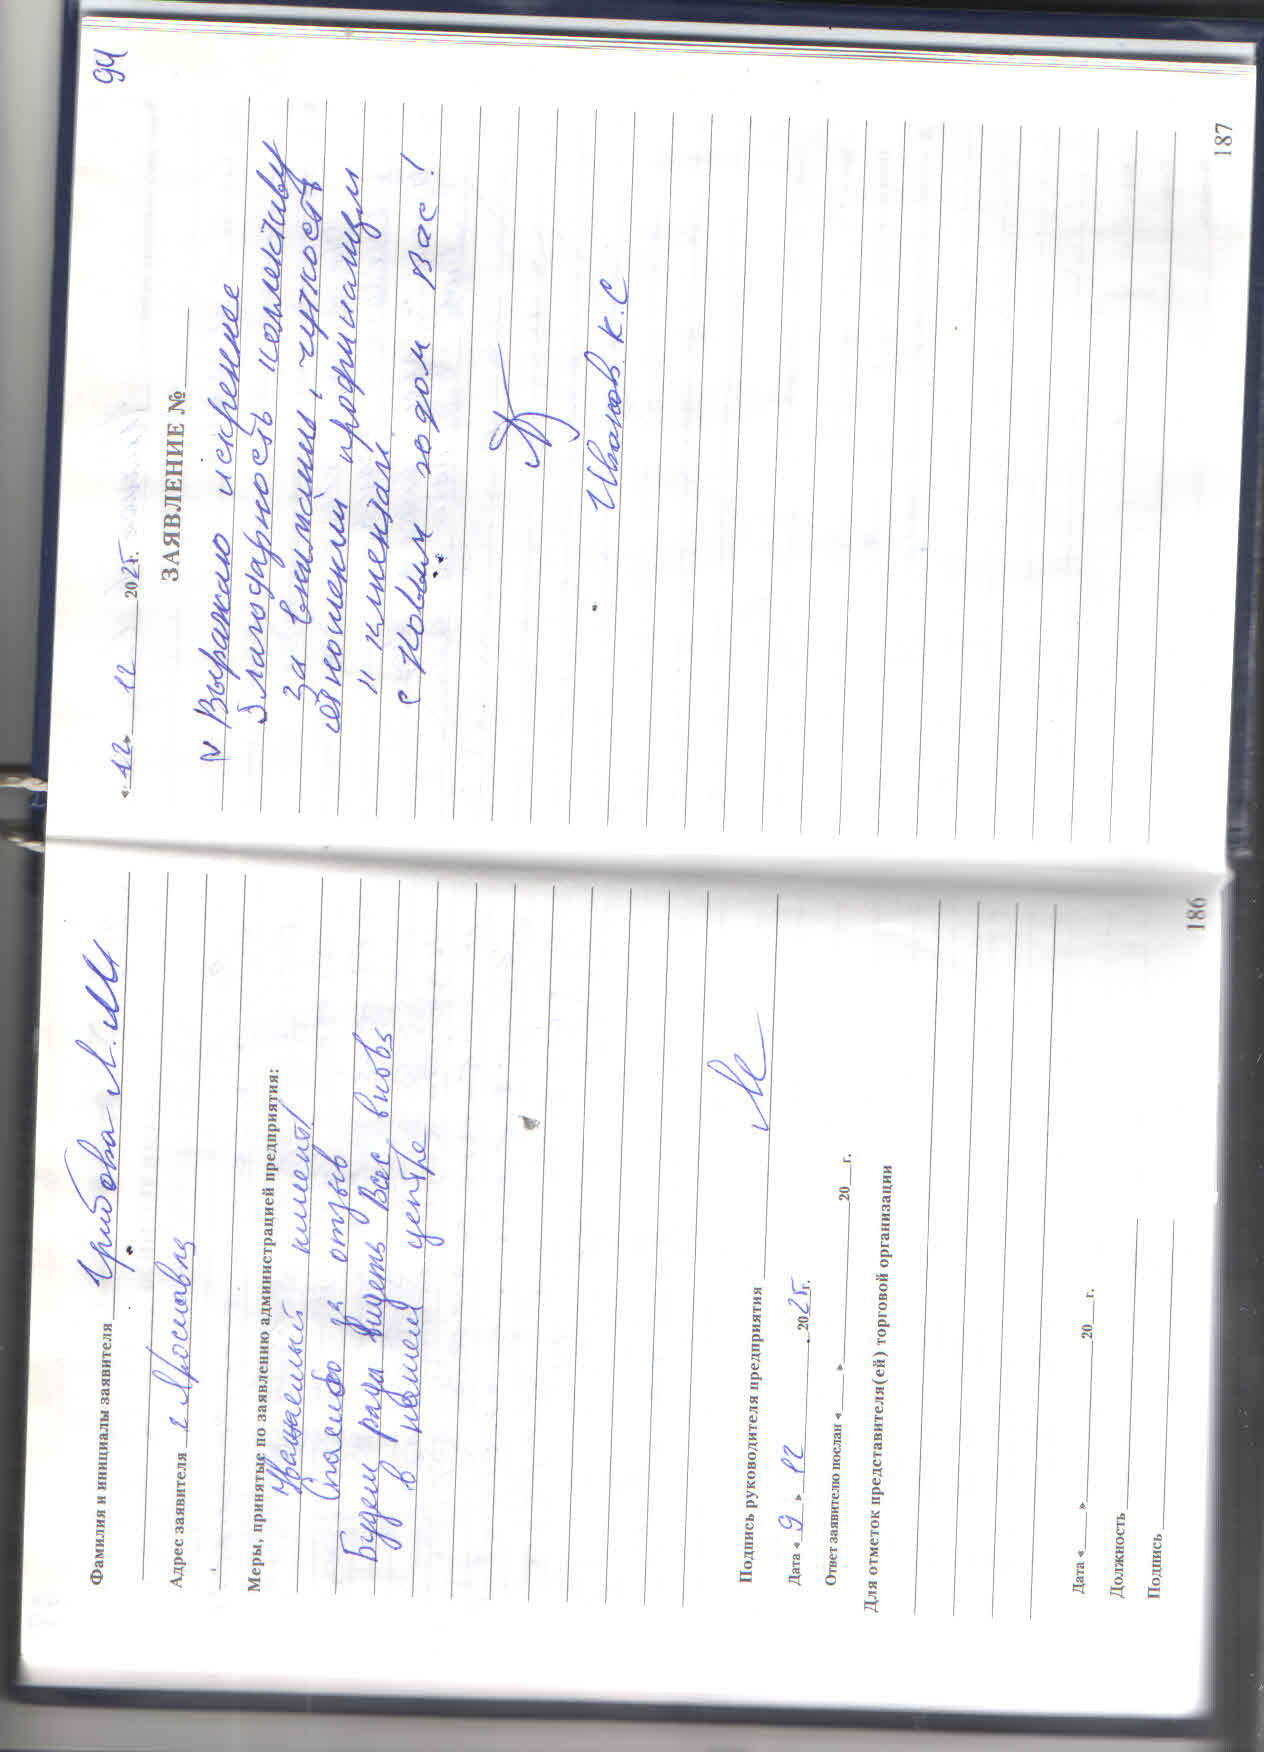 Фамилия и инициалы заявителя Грибова Л.М
Адрес заявителя г Ярославль
Меры, принятые по заявлению администрацией предприятия:
Уважаемый клиент!
Спасибо за отзыв
Будем рады видеть Вас вновь
в нашем центре
Подпись руководителя предприятия
Дата « 9 » 12 2025г.
Ответ заявителю послан « » 20 г.
Для отметок представителя(ей) торговой организации
Дата « » 20 г.
Должность
Подпись
186
94
«12» 12 2025г.
ЗАЯВЛЕНИЕ №
Выражаю искреннее
благодарность коллективу
за внимание, чуткость
отношений профианализм
к клиентам
с Новым годом Вас!
Иванов К.С
187